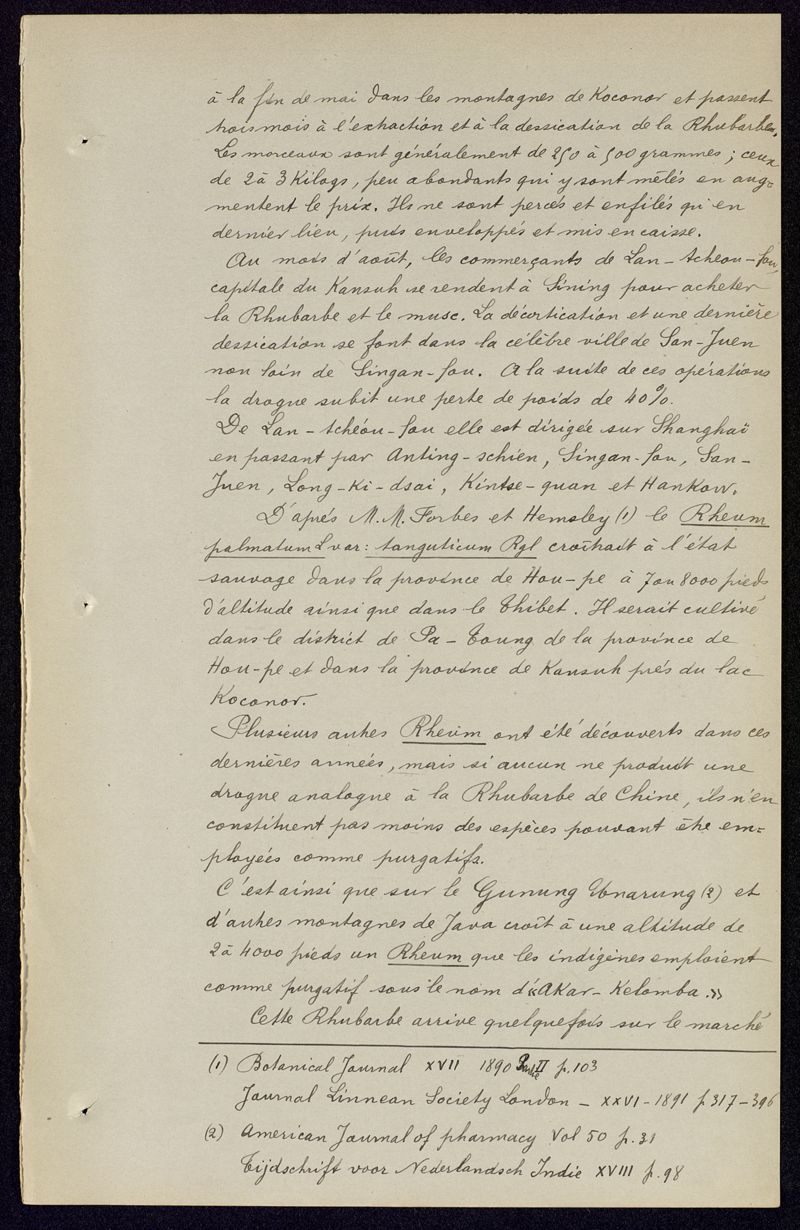 à la fin de mai dans les montagnes de Koconor et passent
trois mois à l'extraction et à la dessication de la Rhubarbe.
Les morceaux sont généralement de 250 à 500 grammes ; ceux
de 2 à 3 Kilogs, peu abondants qui y sont mêlés en aug=
mentent le prix. Ils ne sont percés et enfilés qu'en
dernier lieu, puis enveloppés et mis en caisse.
Au mois d'août, les commerçants de Lan-tchéou-fou,
capitale du Kansuh se rendent à Sining pour acheter
la Rhubarbe et le musc. La décortication et une dernière
dessication se font dans la célèbre ville de San-Juen
non loin de Singan-fou. A la suite de ces opérations
la drogue subit une perte de poids de 40%.
De Lan-tchéou-fou elle est dirigée sur Shanghaï
en passant par Anting-schien, Singan-fou, San-
Juen, Long-Ki-dsai, Kintse-quan et Hankow.
D'après M.M. Forbes et Hemsley (1) le Rheum
palmatum L var: tanguticum Rgl croîtrait à l'état
sauvage dans la province de Hou-pe à 7 ou 8000 pieds
d'altitude ainsi que dans le Thibet. Il serait cultivé
dans le district de Pa-Toung de la province de
Hou-pe et dans la province de Kansuh près du lac
Koconor.
Plusieurs autres Rheum ont été découverts dans ces
dernières années, mais si aucun ne produit une
drogue analogue à la Rhubarbe de Chine, ils n'en
constituent pas moins des espèces pouvant être em=
ployées comme purgatifs.
C'est ainsi que sur le Gunung (2) et
d'autres montagnes de Java croît à une altitude de
2 à 4000 pieds un Rheum que les indigènes emploient
comme purgatif sous le nom d'«Akar-Kelomba.»
Cette Rhubarbe arrive quelquefois sur le marché
(1) Botanical Journal XVII 1890 II p. 103
Journal Linnean Society London - XXVI - 1891 p 317-396
(2) American Journal of pharmacy Vol 50 p. 31
Tijdschrift voor Nederlandsch Indie XVIII p. 98